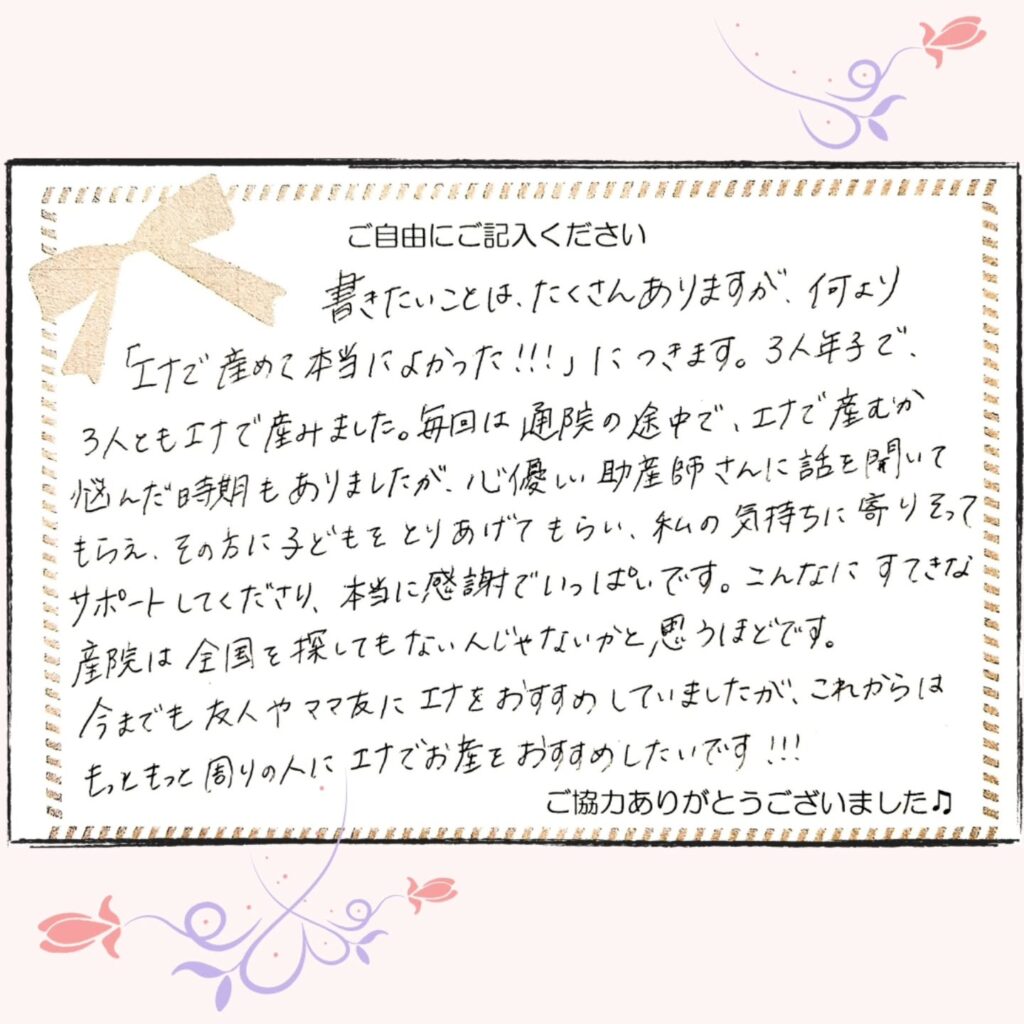 ご自由にご記入ください
書きたいことは、たくさんありますが、何より
「エナで産めて本当によかった!!!」につきます。3人年子で、
3人ともエナで産みました。毎回は通院の途中で、エナで産むか
悩んだ時期もありましたが、心優しい助産師さんに話を聞いて
もらえ、その方に子どもをとりあげてもらい、私の気持ちに寄りそって
サポートしてくださり、本当に感謝でいっぱいです。こんなにすてきな
産院は全国を探してもないんじゃないかと思うほどです。
今までも友人やママ友にエナをおすすめしていましたが、これからは
もっともっと周りの人にエナでお産をおすすめしたいです!!!
ご協力ありがとうございました♫